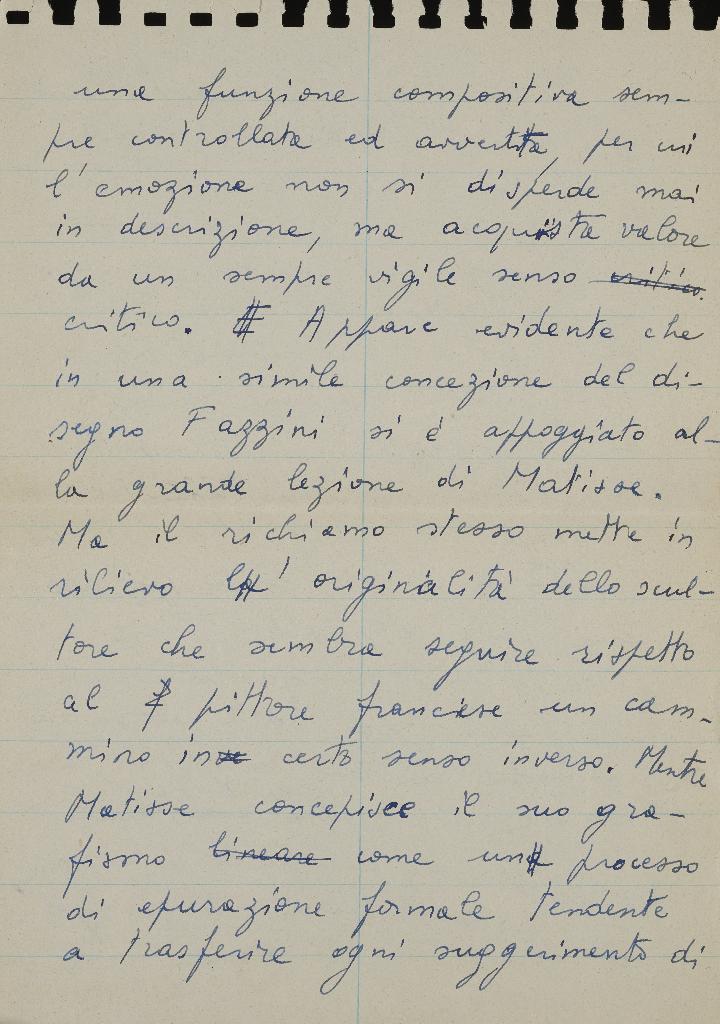 una funzione compositiva sem-
pre controllata ed avvertita, per cui
l'emozione non si disperde mai
in descrizione, ma acquista valore
da un sempre vigile senso critico.
critico. Appare evidente che
in una simile concezione del di-
segno Fazzini si è appoggiato al-
la grande lezione di Matisse.
Ma il richiamo stesso mette in
rilievo l'originalità dello scul-
tore che sembra seguire rispetto
al pittore francese un cam-
mino in certo senso inverso. Mentre
Matisse concepisce il suo gra-
fismo lineare come un processo
di epurazione formale tendente
a trasferire ogni suggerimento di